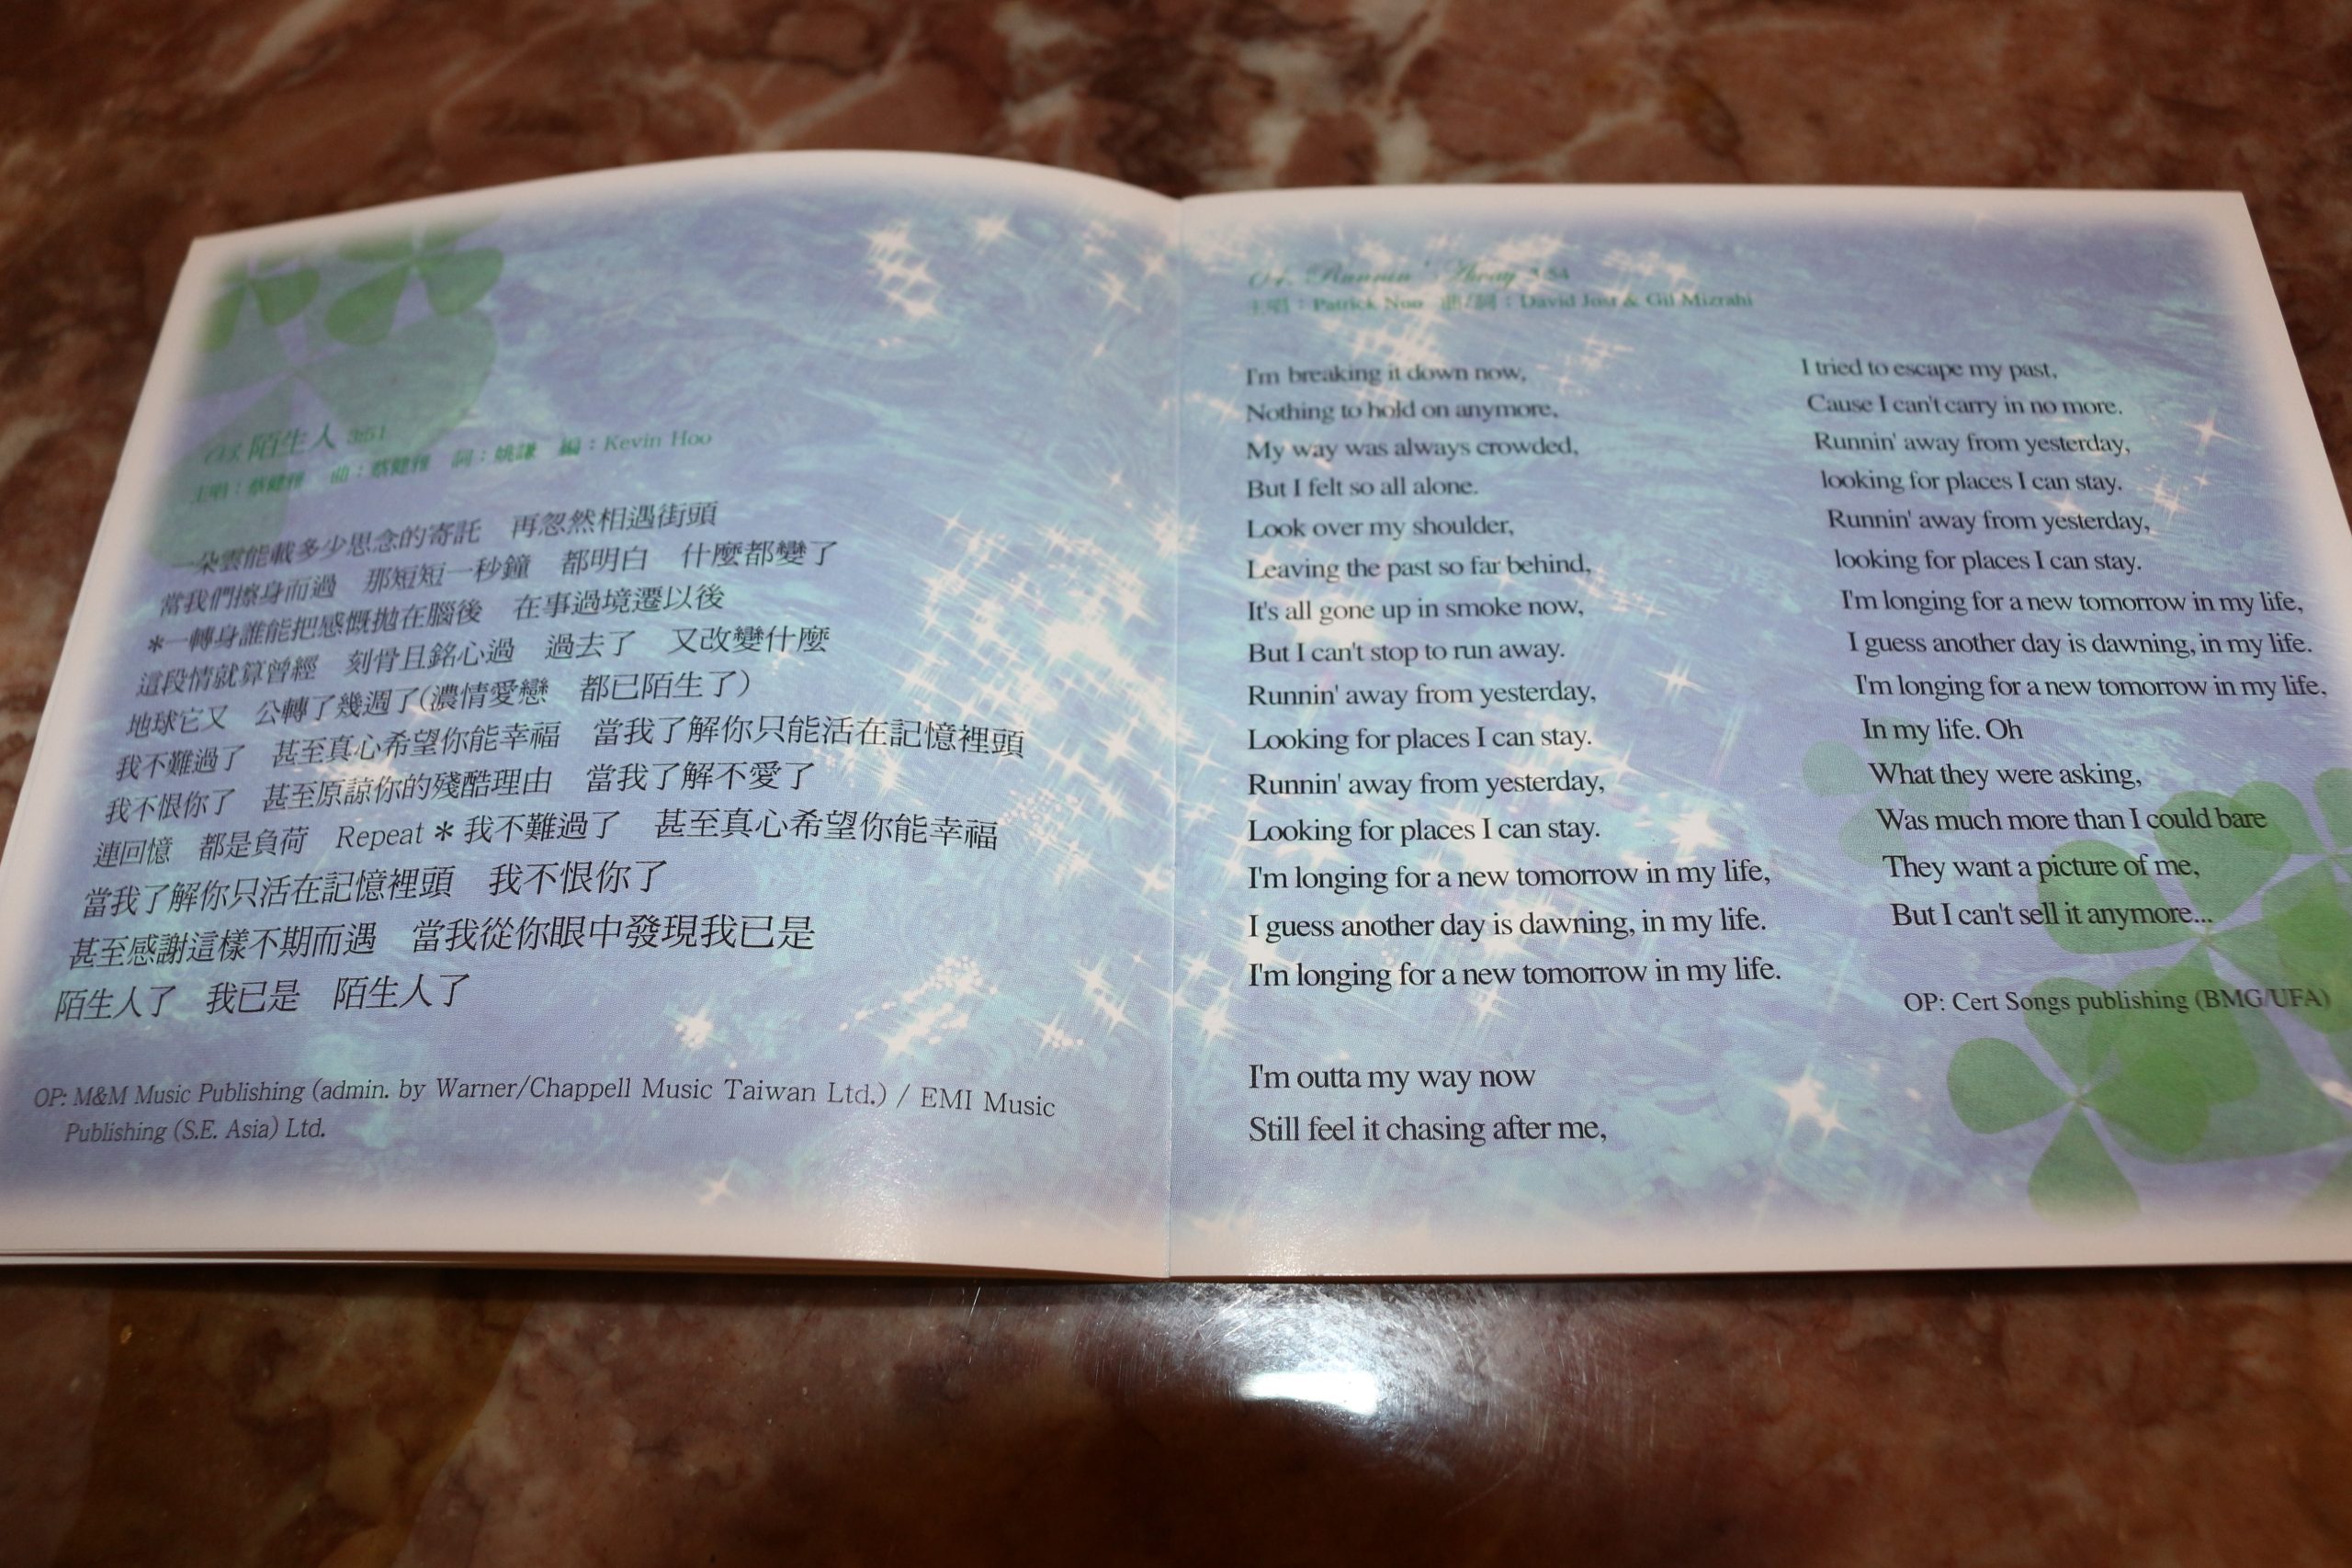 03. 陌生人 3:51
主唱：蔡健雅 曲：蔡健雅 詞：姚謙 編：Kevin Hoo
一朵雲能載多少思念的寄託 再忽然相遇街頭
當我們擦身而過 那短短一秒鐘 都明白 什麼都變了
*一轉身誰能把感慨拋在腦後 在事過境遷以後
這段情就算曾經 刻骨且銘心過 過去了 又改變什麼
地球它又 公轉了幾週了(濃情愛戀 都已陌生了)
我不難過了 甚至真心希望你能幸福 當我了解你只能活在記憶裡頭
我不恨你了 甚至原諒你的殘酷理由 當我了解不愛了
連回憶 都是負荷 Repeat * 我不難過了 甚至真心希望你能幸福
當我了解你只活在記憶裡頭 我不恨你了
甚至感謝這樣不期而遇 當我從你眼中發現我已是
陌生人了 我已是 陌生人了
OP: M&M Music Publishing (admin. by Warner/Chappell Music Taiwan Ltd.) / EMI Music
Publishing (S.E. Asia) Ltd.
04. Runnin' Away 3:54
主唱：Patrick Nuo 曲/詞：David Jost & Gil Mizrahi
I'm breaking it down now,
Nothing to hold on anymore,
My way was always crowded,
But I felt so all alone.
Look over my shoulder,
Leaving the past so far behind,
It's all gone up in smoke now,
But I can't stop to run away.
Runnin' away from yesterday,
Looking for places I can stay.
Runnin' away from yesterday,
Looking for places I can stay.
I'm longing for a new tomorrow in my life,
I guess another day is dawning, in my life.
I'm longing for a new tomorrow in my life.
I'm outta my way now
Still feel it chasing after me,
I tried to escape my past,
Cause I can't carry in no more.
Runnin' away from yesterday,
looking for places I can stay.
Runnin' away from yesterday,
looking for places I can stay.
I'm longing for a new tomorrow in my life,
I guess another day is dawning, in my life.
I'm longing for a new tomorrow in my life,
In my life. Oh
What they were asking,
Was much more than I could bare
They want a picture of me,
But I can't sell it anymore...
OP: Cert Songs publishing (BMG/UFA)